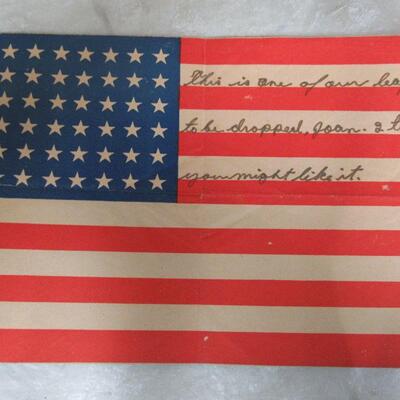 This is one of our
to be dropped, Joan. I
you might like it.